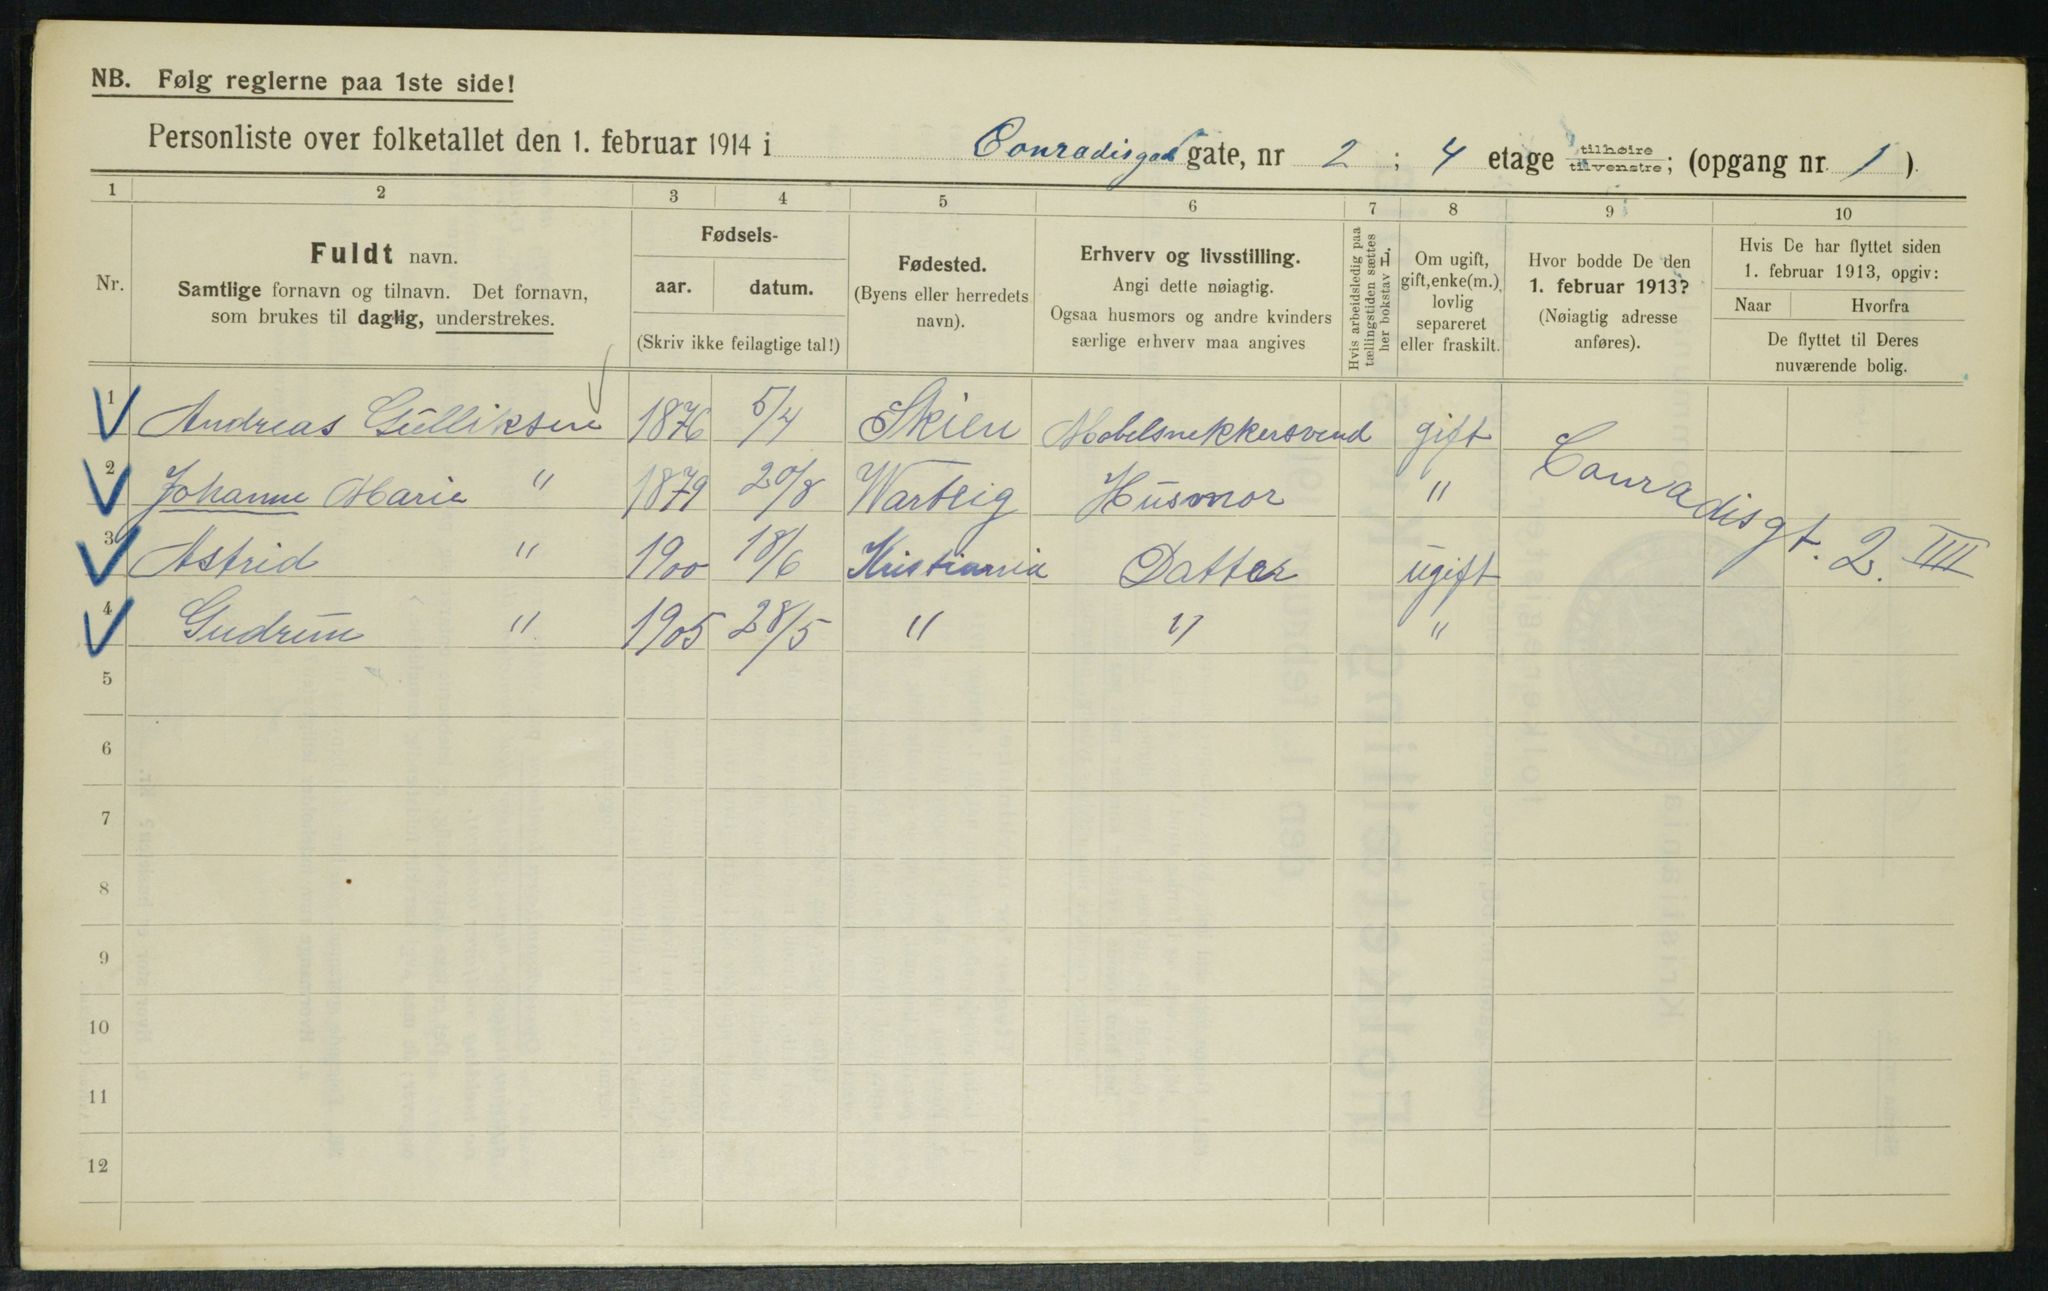 NB. Følg reglerne paa 1ste side!
Personliste over folketallet den 1. februar 1914 i Conradisgad gate, nr 2 ; 4 etage tilhøire tilvenstre; (opgang nr. 1 )
1 2 3 4 5 6 7 8 9 10
Nr.
Fuldt navn.
Samtlige fornavn og tilnavn. Det fornavn,
som brukes til daglig, understrekes.
Fødsels-
aar. datum.
(Skriv ikke feilagtige tal!)
Fødested.
(Byens eller herredets
navn).
Erhverv og livsstilling.
Angi dette nøiagtig.
Ogsaa husmors og andre kvinders
særlige erhverv maa angives
Hvis arbeidsledig paa
tællingstiden sættes
her bokstav L.
Om ugift,
gift, enke(m.),
lovlig
separeret
eller fraskilt.
Hvor bodde De den
1. februar 1913?
(Nøiagtig adresse
anføres).
Hvis De har flyttet siden
1. februar 1913, opgiv:
Naar Hvorfra
De flyttet til Deres
nuværende bolig.
1 Andreas Gulliksen 1876 5/4 Skien Mobelsnekkersvend gift Conradisgt. 2. IIII
2 Johanne Marie " 1879 20/8 Warteig Husmor "
3 Astrid " 1900 18/6 Kristiania Datter ugift
4 Gudrun " 1905 28/5 " " "
5
6
7
8
9
10
11
12